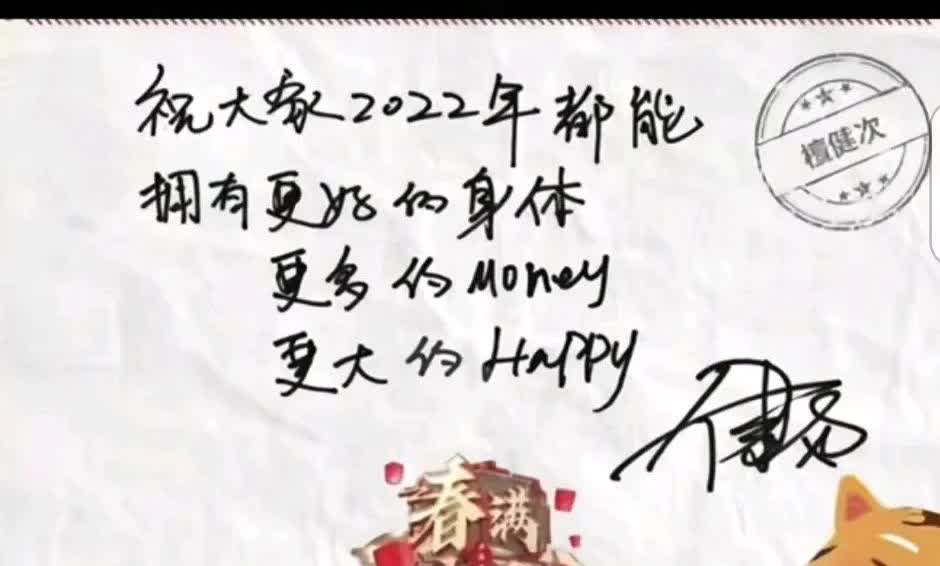 祝大家2022年都能
拥有更好的身体
更多的Money
更大的Happy
檀健次
春满